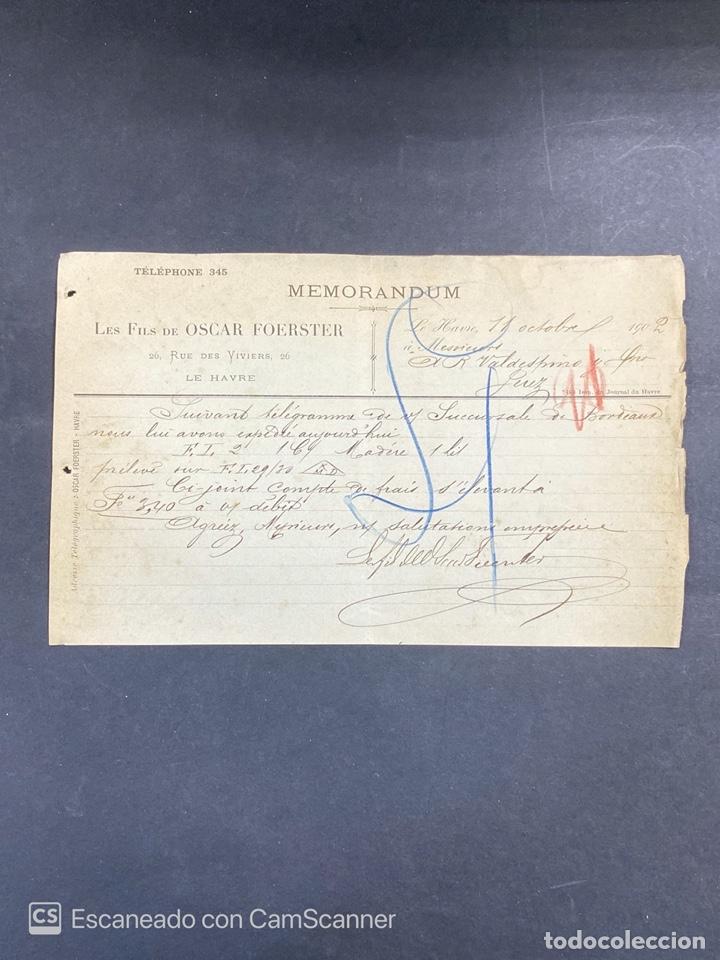 TÉLÉPHONE 345
MEMORANDUM
LES FILS DE OSCAR FOERSTER
26, RUE DES VIVIERS, 26
LE HAVRE
Le Havre, octobre 1902
à Messieurs
A R Valdespino y
Jerez
Imp. du Journal du Havre
Adresse Télégraphique: OSCAR FOERSTER - HAVRE
Suivant télégramme de Succursale de Bordeaux
nous lui avons expédié aujourd'hui
F.I. 2 1 Madère 1
prélevé sur F.I. 29/30
Ci-joint compte de frais s'élevant à
3,40 à débit
Agréez, Messieurs, n/ salutations empressées
CS Escaneado con CamScanner
todocoleccion